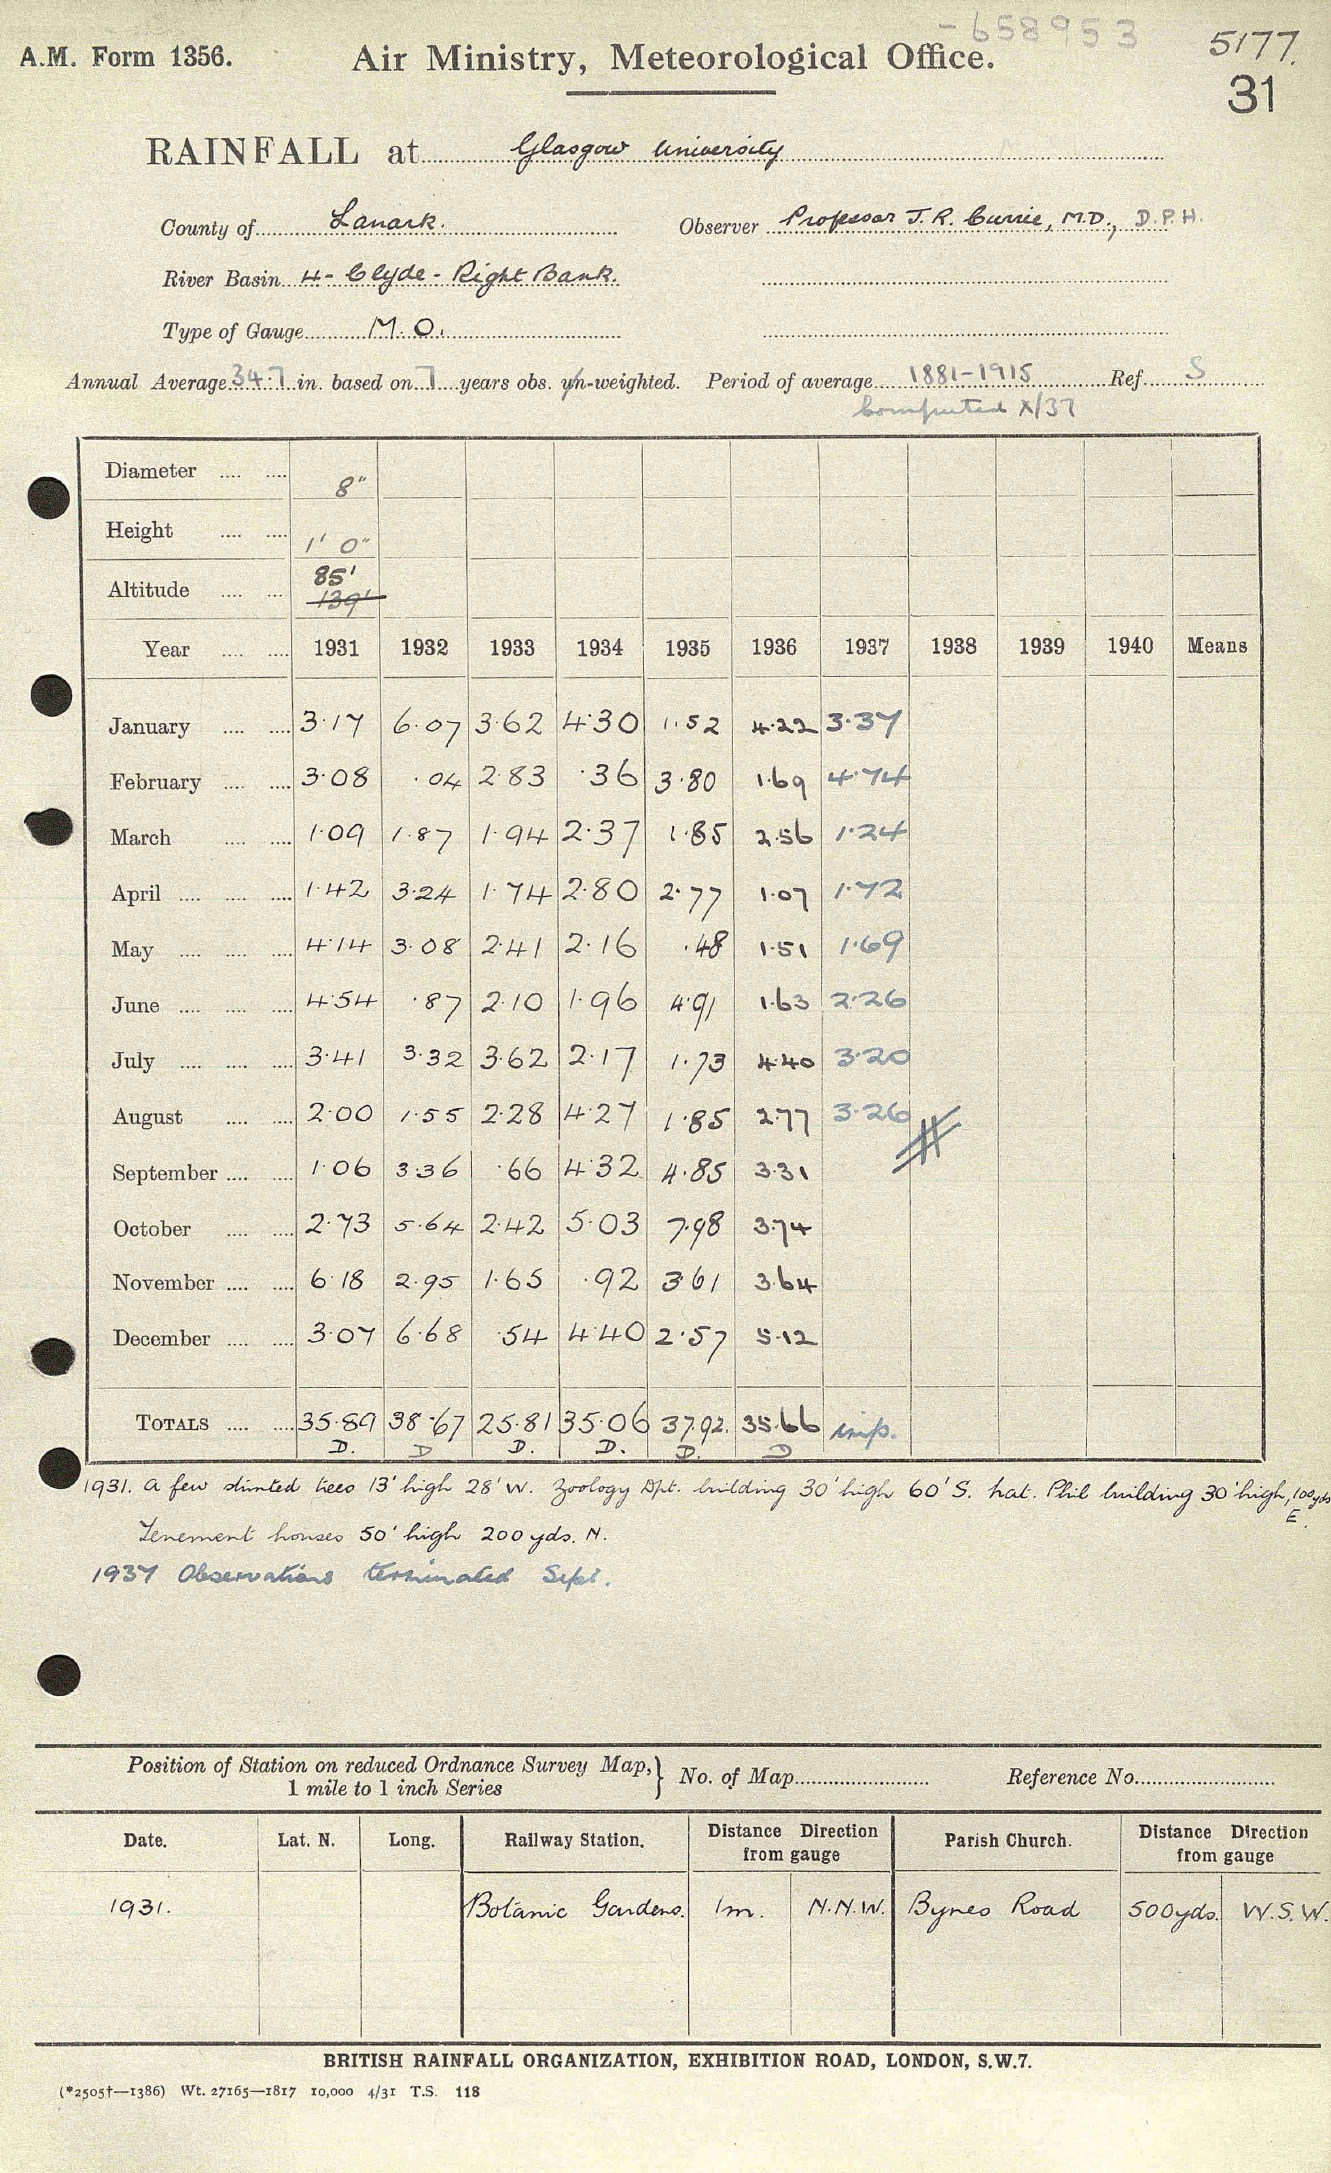 -658953
5177.
A.M. Form 1356. Air Ministry, Meteorological Office.
31
RAINFALL at Glasgow University
County of Lanark. Observer Professor J. R. Currie, M.D., D.P.H.
River Basin 4 - Clyde - Right Bank.
Type of Gauge M.O.
Annual Average 34.7 in. based on 7 years obs. un-weighted. Period of average 1881-1915 Ref. S
Computed X/37
Diameter .... .... 8"
Height .... .... 1' 0"
Altitude .... .... 85'
139'
Year .... .... 1931 1932 1933 1934 1935 1936 1937 1938 1939 1940 Means
January .... .... 3.17 6.07 3.62 4.30 1.52 4.22 3.37
February .... .... 3.08 .04 2.83 .36 3.80 1.69 4.74
March .... .... 1.09 1.87 1.94 2.37 1.85 2.56 1.24
April .... .... .... 1.42 3.24 1.74 2.80 2.77 1.07 1.72
May .... .... .... 4.14 3.08 2.41 2.16 .48 1.51 1.69
June .... .... .... 4.54 .87 2.10 1.96 4.91 1.63 2.26
July .... .... .... 3.41 3.32 3.62 2.17 1.73 4.40 3.20
August .... .... 2.00 1.55 2.28 4.27 1.85 2.77 3.26
September .... .... 1.06 3.36 .66 4.32 4.85 3.31
October .... .... 2.73 5.64 2.42 5.03 7.98 3.74
November .... .... 6.18 2.95 1.65 .92 3.61 3.64
December .... .... 3.07 6.68 .54 4.40 2.57 5.12
TOTALS .... .... 35.89 38.67 25.81 35.06 37.92. 35.66 imp.
D. D D. D. D. D
1931. A few stunted trees 13' high 28' W. Zoology Dpt. building 30' high 60' S. Nat. Phil building 30' high, 100yds
E.
Tenement houses 50' high 200 yds. N.
1937 Observations terminated Sept.
Position of Station on reduced Ordnance Survey Map,} No. of Map Reference No.
1 mile to 1 inch Series
Date. Lat. N. Long. Railway Station. Distance Direction from gauge Parish Church. Distance Direction from gauge
1931. Botanic Gardens. 1m. N.N.W. Byres Road 500yds. W.S.W.
BRITISH RAINFALL ORGANIZATION, EXHIBITION ROAD, LONDON, S.W.7.
(*2505†—1386) Wt. 27165—1817 10,000 4/31 T.S. 118